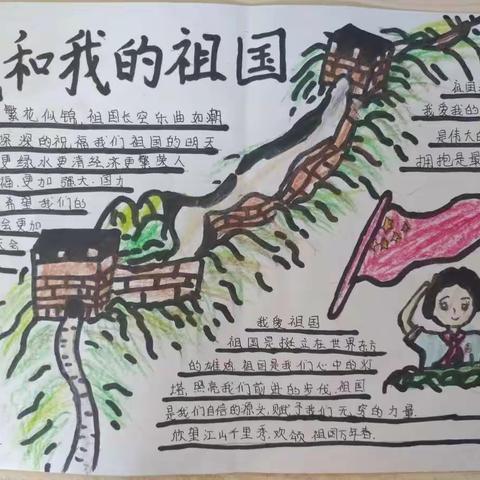 和我的祖国
繁花似锦,祖国长空乐曲如潮
深深的祝福我们祖国的明天
更绿水更清经济更繁荣人
福更加强大.国力
希望我们的
会更加
会
祖国
我爱我的
是伟大的
拥抱是最
我爱祖国
祖国是挺立在世界东方
的雄鸡.祖国是我们心中的灯
塔,照亮我们前进的步伐.祖国
是我们自信的源头,赋予我们无穷的力量.
欣望江山千里秀,欢颂祖国万年春.